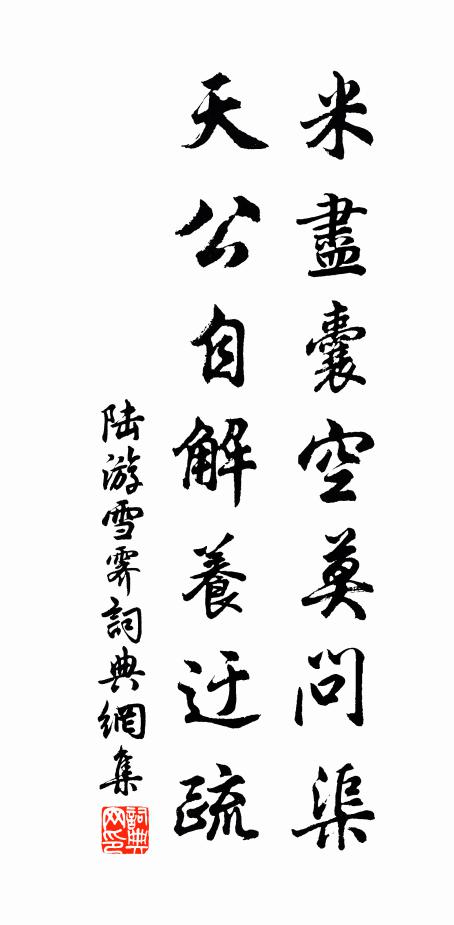 米盡囊空莫問渠
天公自解養迂疏
陆游雪霽詞典網集
詞典網印